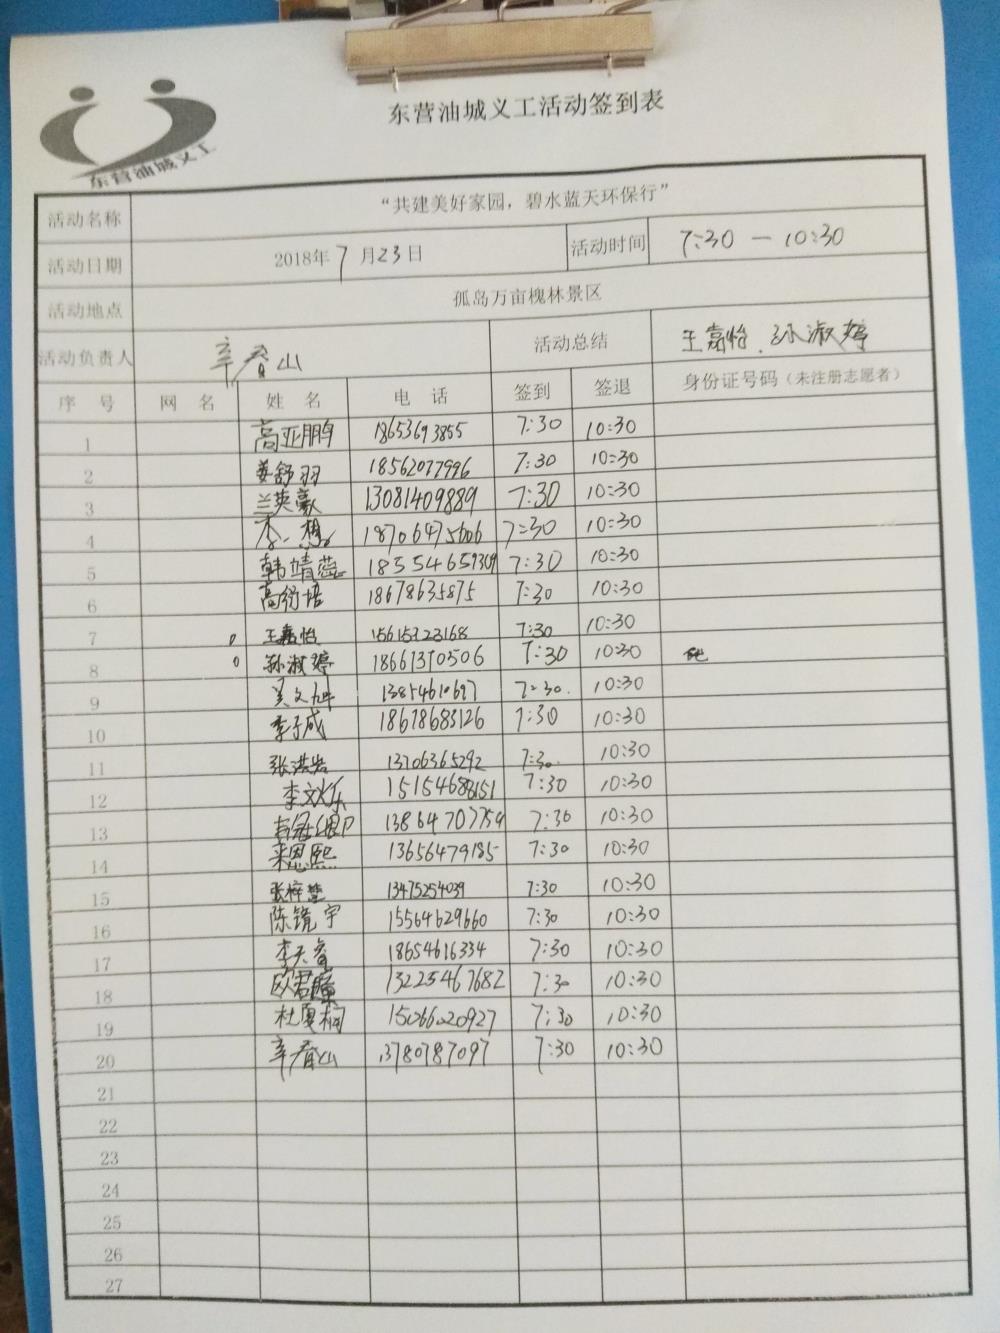 东营油城义工活动签到表
东营油城义工
活动名称 “共建美好家园，碧水蓝天环保行”
活动日期 2018年7月23日 活动时间 7:30 — 10:30
活动地点 孤岛万亩槐林景区
活动负责人 辛春山 活动总结 王嘉怡、孙淑婷
序号 网名 姓名 电话 签到 签退 身份证号码（未注册志愿者）
1 高亚鹏 18653693855 7:30 10:30
2 姜舒羽 18562077996 7:30 10:30
3 兰英豪 13081409889 7:30 10:30
4 李想 18706475606 7:30 10:30
5 韩靖蕊 18554659309 7:30 10:30
6 18678635875 7:30 10:30
7 王嘉怡 15615323168 7:30 10:30
8 孙淑婷 18661370506 7:30 10:30
9 吴文旭 13854610697 7:30 10:30
10 李子成 18678683126 7:30 10:30
11 张洪岩 13706365292 7:30 10:30
12 李文乐 15154688151 7:30 10:30
13 13864707759 7:30 10:30
14 来恩熙 13656479185 7:30 10:30
15 张梓楚 13475254039 7:30 10:30
16 陈镜宇 15564629660 7:30 10:30
17 李天睿 18654616334 7:30 10:30
18 欧君瞳 13225467682 7:30 10:30
19 杜厦桐 15066020927 7:30 10:30
20 辛春山 13780787097 7:30 10:30
21
22
23
24
25
26
27